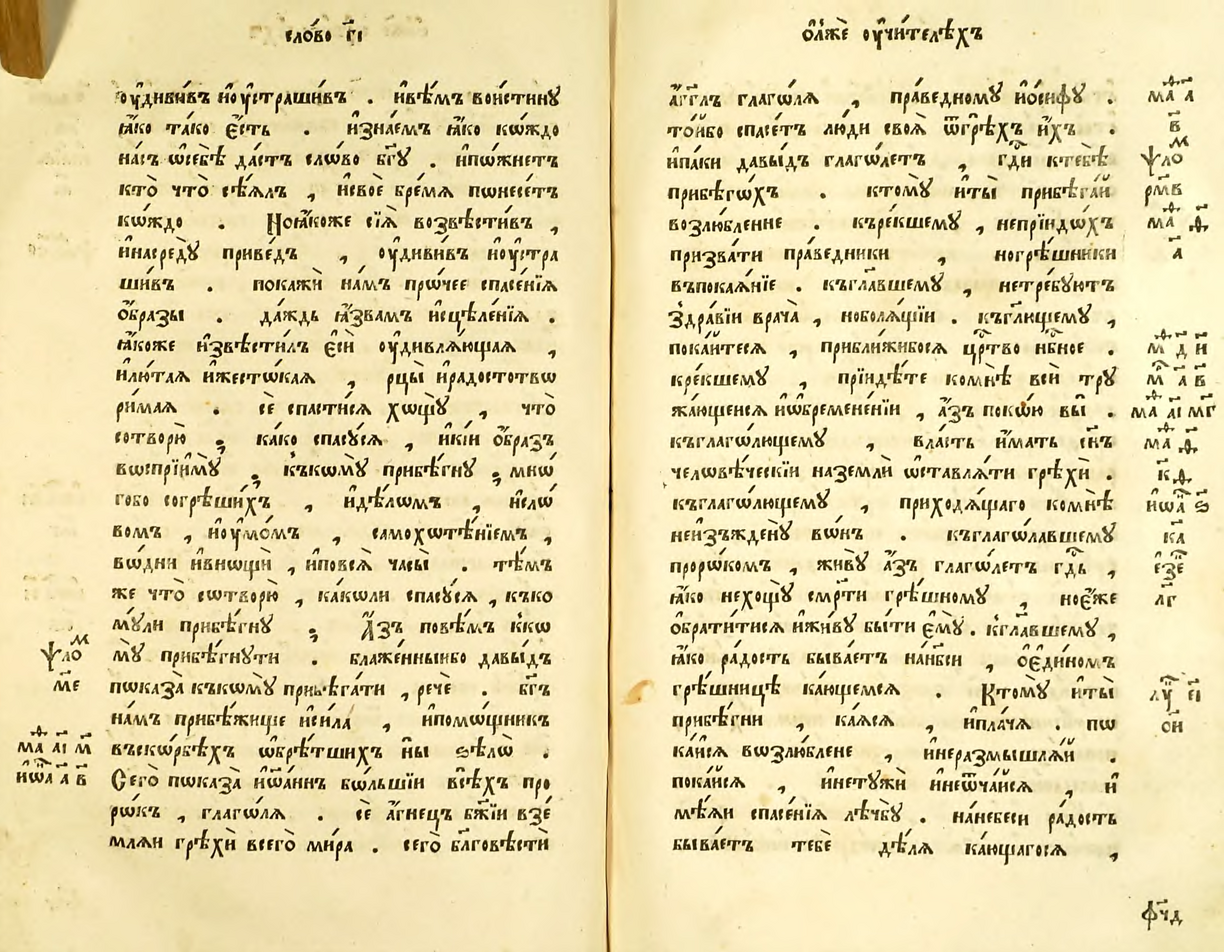 сло́во г҃і
ᲂу҆дивѝвъ иᲂу҆страшѝвъ . и҆вѣ́мъ вои́стину
ꙗ҆́ко та́ко є҆́сть . и҆зна́емъ ꙗ҆́ко кѡ́ждо
на́съ ѡ҆себѣ̀ да́стъ сло́во бг҃ꙋ . и҆пѡ́жнетъ
кто̀ что̀ сѣ́ѧлъ , и҆своѐ бре́мѧ пѡнесе́тъ
кѡ́ждо . Ноꙗ҆́коже сїѧ̀ возвѣсти́въ ,
и҆насредꙋ̀ приве́дъ , ᲂу҆диви́въ иᲂу҆стра
ши́въ . покажѝ на́мъ прѡ́чее спасе́нїѧ
ѻ҆́бразы . да́ждь ꙗ҆́звамъ и҆сцѣле́нїѧ .
ꙗ҆́коже и҆звѣсти́лъ є҆сѝ ᲂу҆дивлѧ́ющаѧ ,
и҆лю́таѧ и҆жестѡ́каѧ , рцы̀ и҆ра́достотвѡ
ри́маѧ . сѐ спасти́сѧ хѡщꙋ̀ , что̀
сотворю̀ ; ка́ко спасꙋ́сѧ , и҆кі́и ѻ҆́бразъ
вѡспрїимꙋ̀ ; къкѡмꙋ̀ прибѣ́гнꙋ ; мнѡ́
гобо согрѣши́хъ , и҆дѣ́лѡмъ , и҆сло́
вомъ , иᲂу҆мо́мъ , самохѡтѣ́нїемъ ,
вѡ́дни и҆внощѝ , и҆повсѧ̀ часы̀ . тѣ́мъ
же что̀ сѡтворю̀ , ка́кѡли спасꙋ́сѧ , къко
мꙋ́ли прибѣ́гнꙋ ; А҆́зъ повѣ́мъ кꙋкѡ
мꙋ̀ прибѣ́гнꙋти . блаже́нныибо давы́дъ
пѡказа̀ къкѡмꙋ̀ прибѣга́ти , речѐ . бг҃ъ
на́мъ прибѣ́жище и҆си́ла , и҆помѡ́щникъ
въско́рбѣхъ ѡ҆брѣ́тшихъ ны̀ ѕѣлѡ̀ .
Сего̀ пѡказа̀ и҆ѡа́ннъ бѡ́льшїи всѣ́хъ про
рѡ́къ , глаго́лѧ . сѐ а҆́гнецъ бж҃їи взе́
млѧи грѣхѝ всего̀ ми́ра . сего̀ благовѣстѝ
ѱло м
м҃е
ма а҃і м҃
и҆ѡа а҃ в҃
ѻ҆лжѐ ᲂу҆чи́телѣхъ
а҆́гг҃лъ глаго́лѧ , пра́ведномꙋ и҆ѡ́сифꙋ .
то́ибо спасе́тъ лю́ди своѧ̀ ѿгрѣ́хъ и҆́хъ .
и҆па́ки давы́дъ глаго́летъ , гд҃и ктебѣ̀
прибѣго́хъ . ктомꙋ̀ и҆ты̀ прибѣга́й
возлю́бленне . къре́кшемꙋ , непрїидо́хъ
призва́ти пра́ведники , ногрѣ́шники
въпокаѧ́нїе . къгл҃авшемꙋ , нетре́бꙋютъ
здра́вїи врача̀ , ноболѧ́щїи . къгл҃ющемꙋ ,
пока́итесѧ , прибли́жибосѧ црⷭ҇тво нб҃ное .
кре́кшемꙋ , прїидѣ́те комнѣ̀ всѝ трꙋ
жа́ющеисѧ и҆ѡ҆бремене́нїи , а҆́зъ поко́ю вы̀ .
къглаго́лющемꙋ , вла́сть и҆́мать сн҃ъ
человѣ́ческїи наземлѝ ѡ҆ставлѧ́ти грѣхѝ .
къглаго́лющемꙋ , приходѧ́щаго комнѣ̀
неи҆зъжденꙋ̀ во́нъ . къглаго́лавшемꙋ
проро́комъ , живꙋ̀ а҆́зъ глаго́летъ гдⷭ҇ь ,
ꙗ҆́ко нехощꙋ̀ сме́рти грѣ́шномꙋ , ноє҆́же
ѻ҆брати́тисѧ и҆жи́вꙋ бы́ти є҆мꙋ̀ . кгл҃авшемꙋ ,
ꙗ҆́ко ра́дость быва́етъ нан҃бси , ѻ҆є҆ди́номъ
грѣ́шницѣ ка́ющемсѧ . Ктомꙋ̀ и҆ты̀
прибѣ́гни , ка́ѧсѧ , и҆пла́чѧ . пѡ
ка́исѧ возлю́блене , и҆неразмышлѧ́й .
пока́исѧ , и҆нетꙋжѝ и҆неѿча́исѧ , и҆
мѣ́ѧи спасе́нїѧ лѣ́чбꙋ . нанебесѝ ра́дость
быва́етъ тебѐ дѣ́лѧ ка́ющагосѧ ,
ма а҃
в҃
ѱло м
рм҃в
ма ф
а҃
м д҃ и҃
м҃ а҃ в҃
ма а҃і м҃г
ма ф
к҃ф
и҆ѡа ѕ҃
к҃а
є҆зе
л҃г
лꙋ є҃і
ѻ҃и
ф҃чд